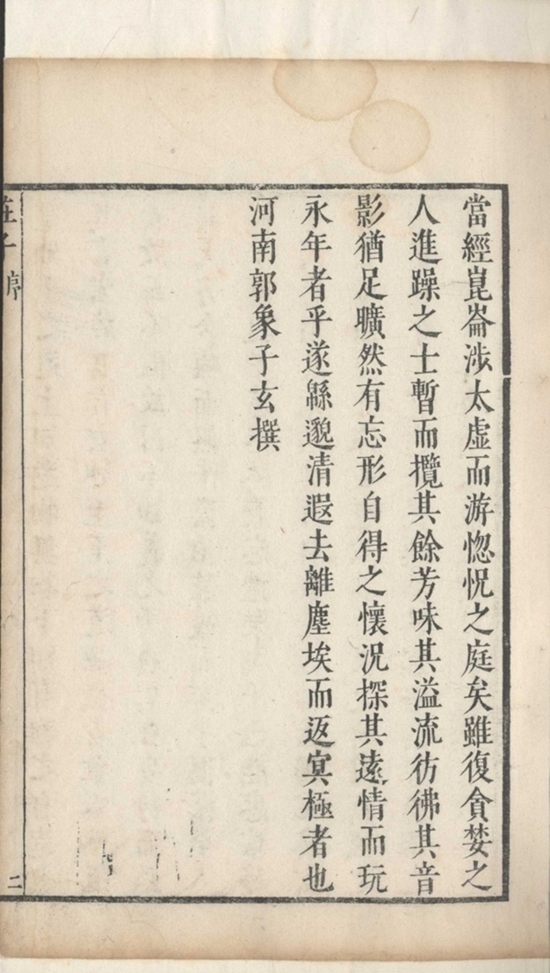 當經崑崙涉太虛而游惚怳之庭矣雖復貪婪之
人進躁之士暫而攬其餘芳味其溢流彷彿其音
影猶足曠然有忘形自得之懷況探其遠情而玩
永年者乎遂緜邈清遐去離塵埃而返冥極者也
河南郭象子玄撰
莊子 序
二